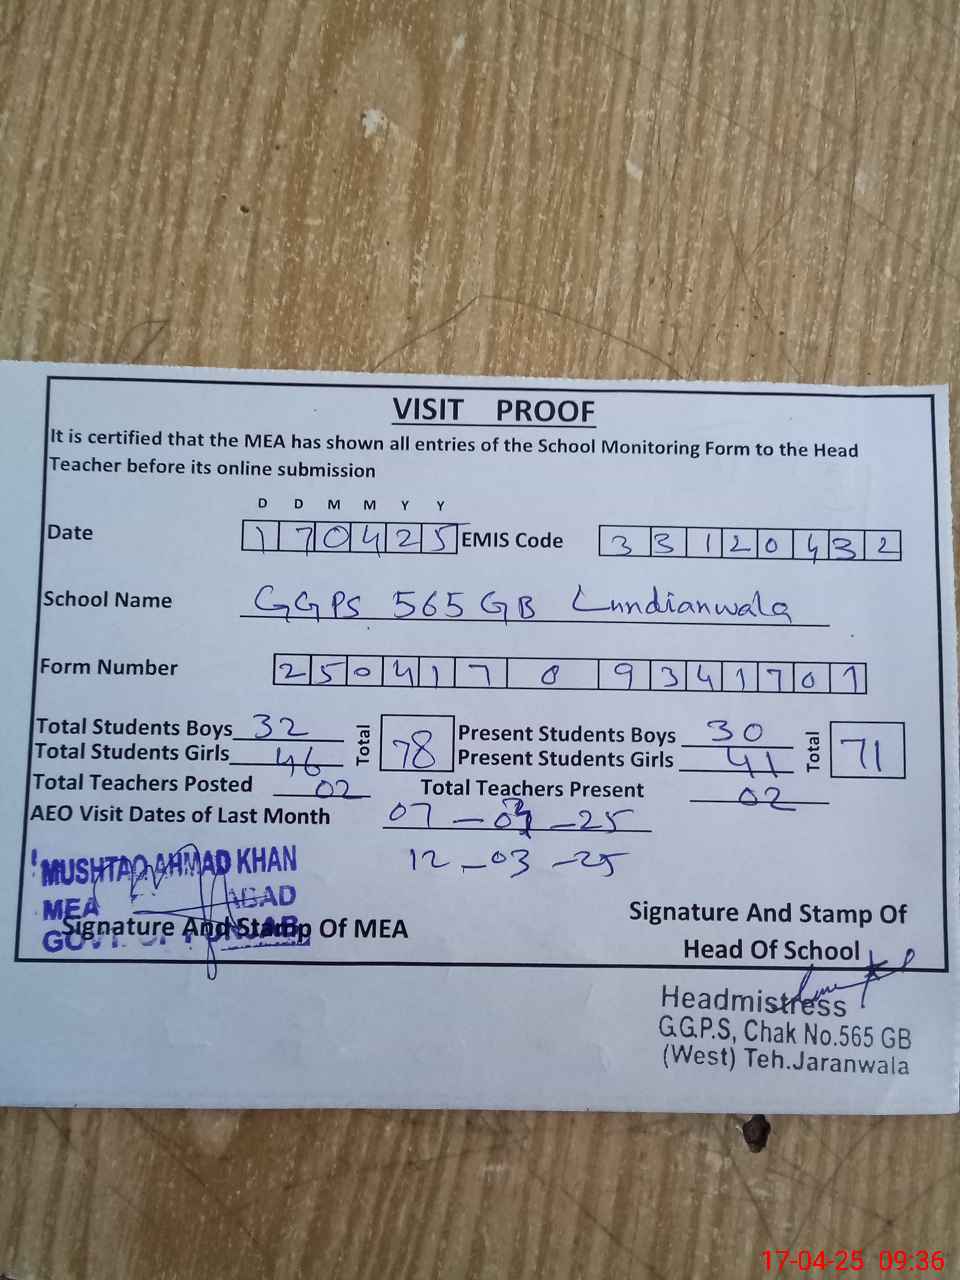 VISIT PROOF
It is certified that the MEA has shown all entries of the School Monitoring Form to the Head
Teacher before its online submission
D D M M Y Y
Date 170425 EMIS Code 33120432
School Name GGPS 565 GB Lundianwala
Form Number 25041709341701
Total Students Boys 32 Total 78 Present Students Boys 30 Total 71
Total Students Girls 46 Present Students Girls 41
Total Teachers Posted 02 Total Teachers Present 02
AEO Visit Dates of Last Month 07-03-25
12-03-25
MUSHTAQ AHMAD KHAN
MEA
Signature And Stamp Of MEA
Signature And Stamp Of
Head Of School
Headmistress
G.G.P.S, Chak No.565 GB
(West) Teh.Jaranwala
17-04-25 09:36